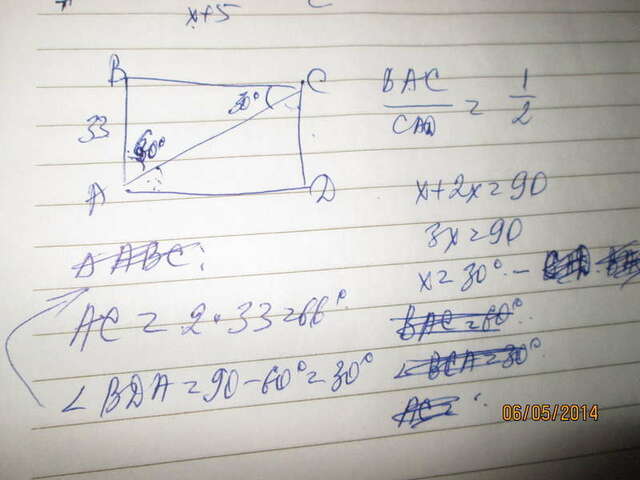 x+5
B
C
30°
33
60°
A
D
BAC / CAD = 1/2
x+2x=90
3x=90
x=30° -
△ABC:
AC = 2·33=66°
∠BDA=90-60°=30°
BAC=60°
∠BCA=30°
AC=
06/05/2014